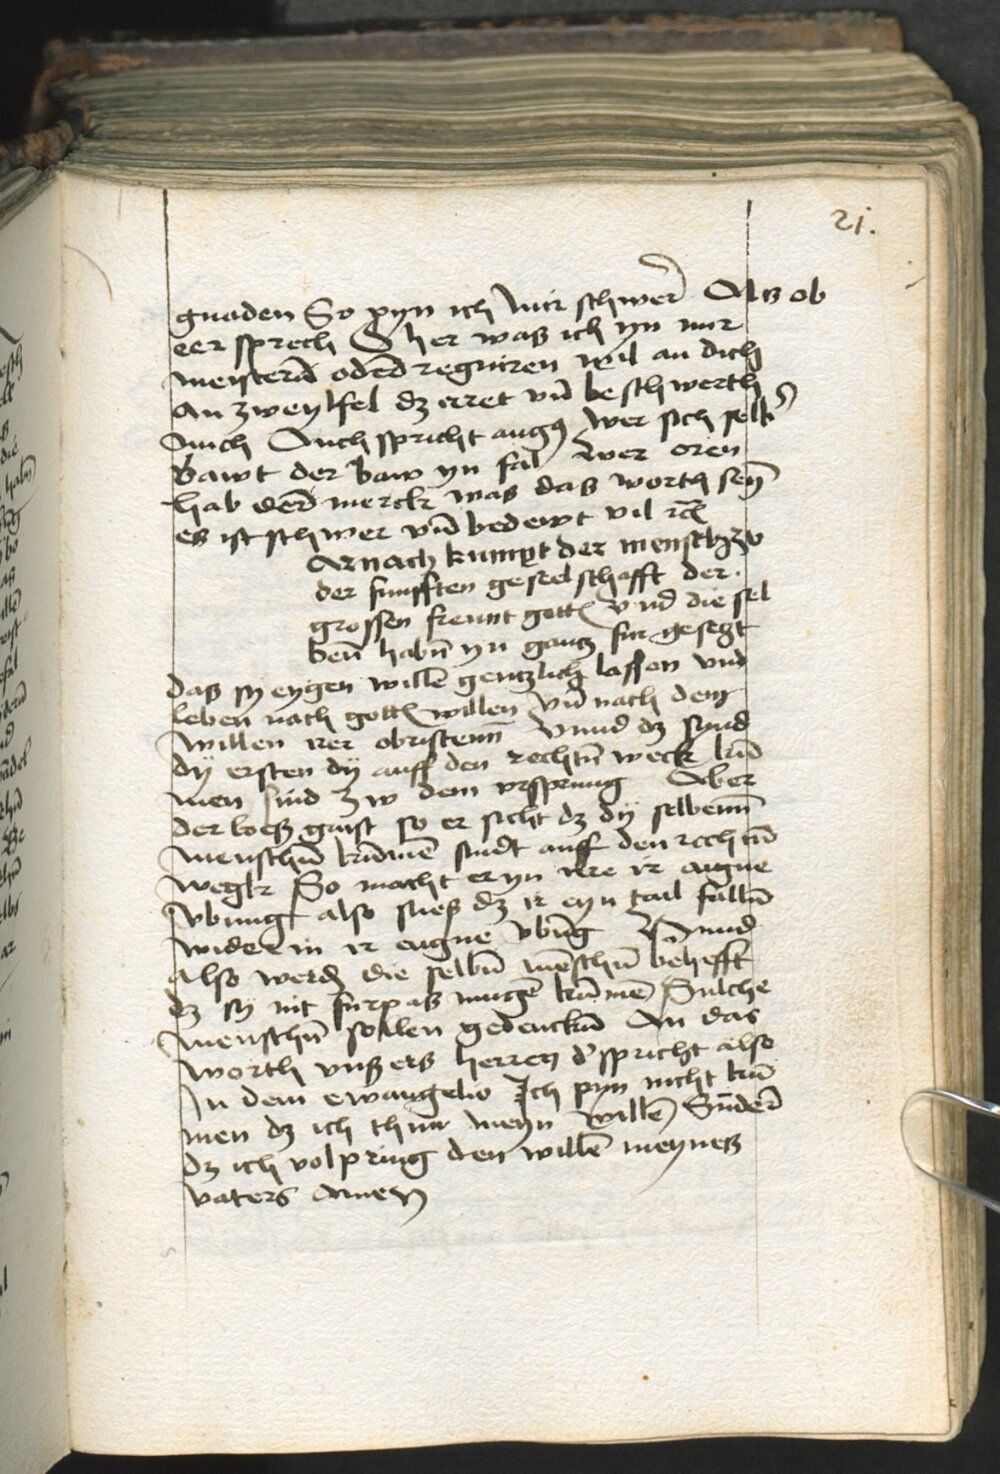 21.
gnaden So pyn ich mir schwer Als ob
eer sprech O her was ich yn mir
meistern̄ oder̄ regniren wil an dich
an zweyffel dz erret vn̄ beschwerth
mich Auch spricht augꝰ wer sich selbs
Bawt der baw yn fal Wer oren
hab der̄ merck was das worth sey̅
es ist schwer vn̄d bedewt vil
Arnach kumpt der mensch zu
der funfften geselschafft der
grossen freunt gotts vnd die sel
ben̄ habn̄ yn gantz fur gesegt
das sy eygen willē gentzlich lassen vnd
leben nach gotts willen vn̄ nach dem
willen irer obristenn̄ Vnnd dz synd
dÿ ersten dÿ auff den rechtn̄ weck kum̄
men sind zw dem vrsprung Aber
der boeß gaist so er sicht dz dÿ selbenn̄
menschn̄ kum̄mē sindt auff den rechtn̄
wegk So macht er yn ire ir aigne
vbungk also sueß dz ir eyn tail falln̄
wider in ir eugne vbūg Vnnd
also werdn̄ die selbn̄ mēschn̄ behefft
dz sy nit furpas mugē kum̄mē Sulche
menschn̄ sollen gedenckn̄ An das
worth vnßers herren d' spricht also
In dem ewangelio Ich pyn nicht kum̄
men dz ich thuu meyn willē Sūder̄
dz ich volpring den willē meyneß
vaters amen